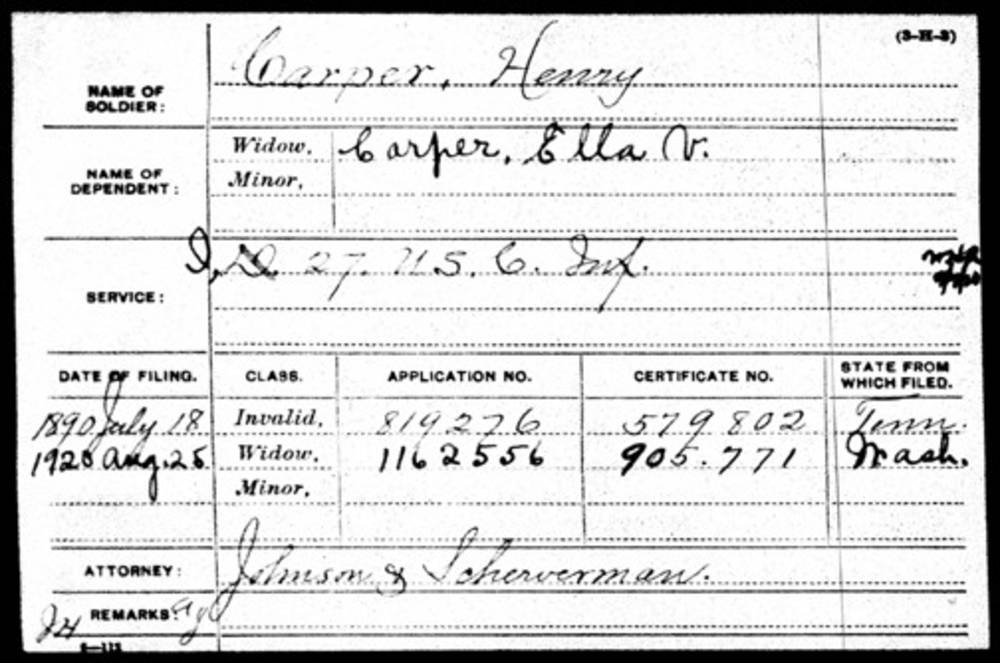 (3-H-3)
NAME OF SOLDIER: Carper, Henry
NAME OF DEPENDENT: Widow, Carper, Ella V.
Minor,
SERVICE: I, D. 27. U S. C. Inf.
DATE OF FILING. CLASS. APPLICATION NO. CERTIFICATE NO. STATE FROM WHICH FILED.
1890 July 18 Invalid, 819276 579802 Tenn.
1920 Aug. 25 Widow, 1162556 905.771 Wash.
Minor,
ATTORNEY: Johnson & Scherverman.
REMARKS: